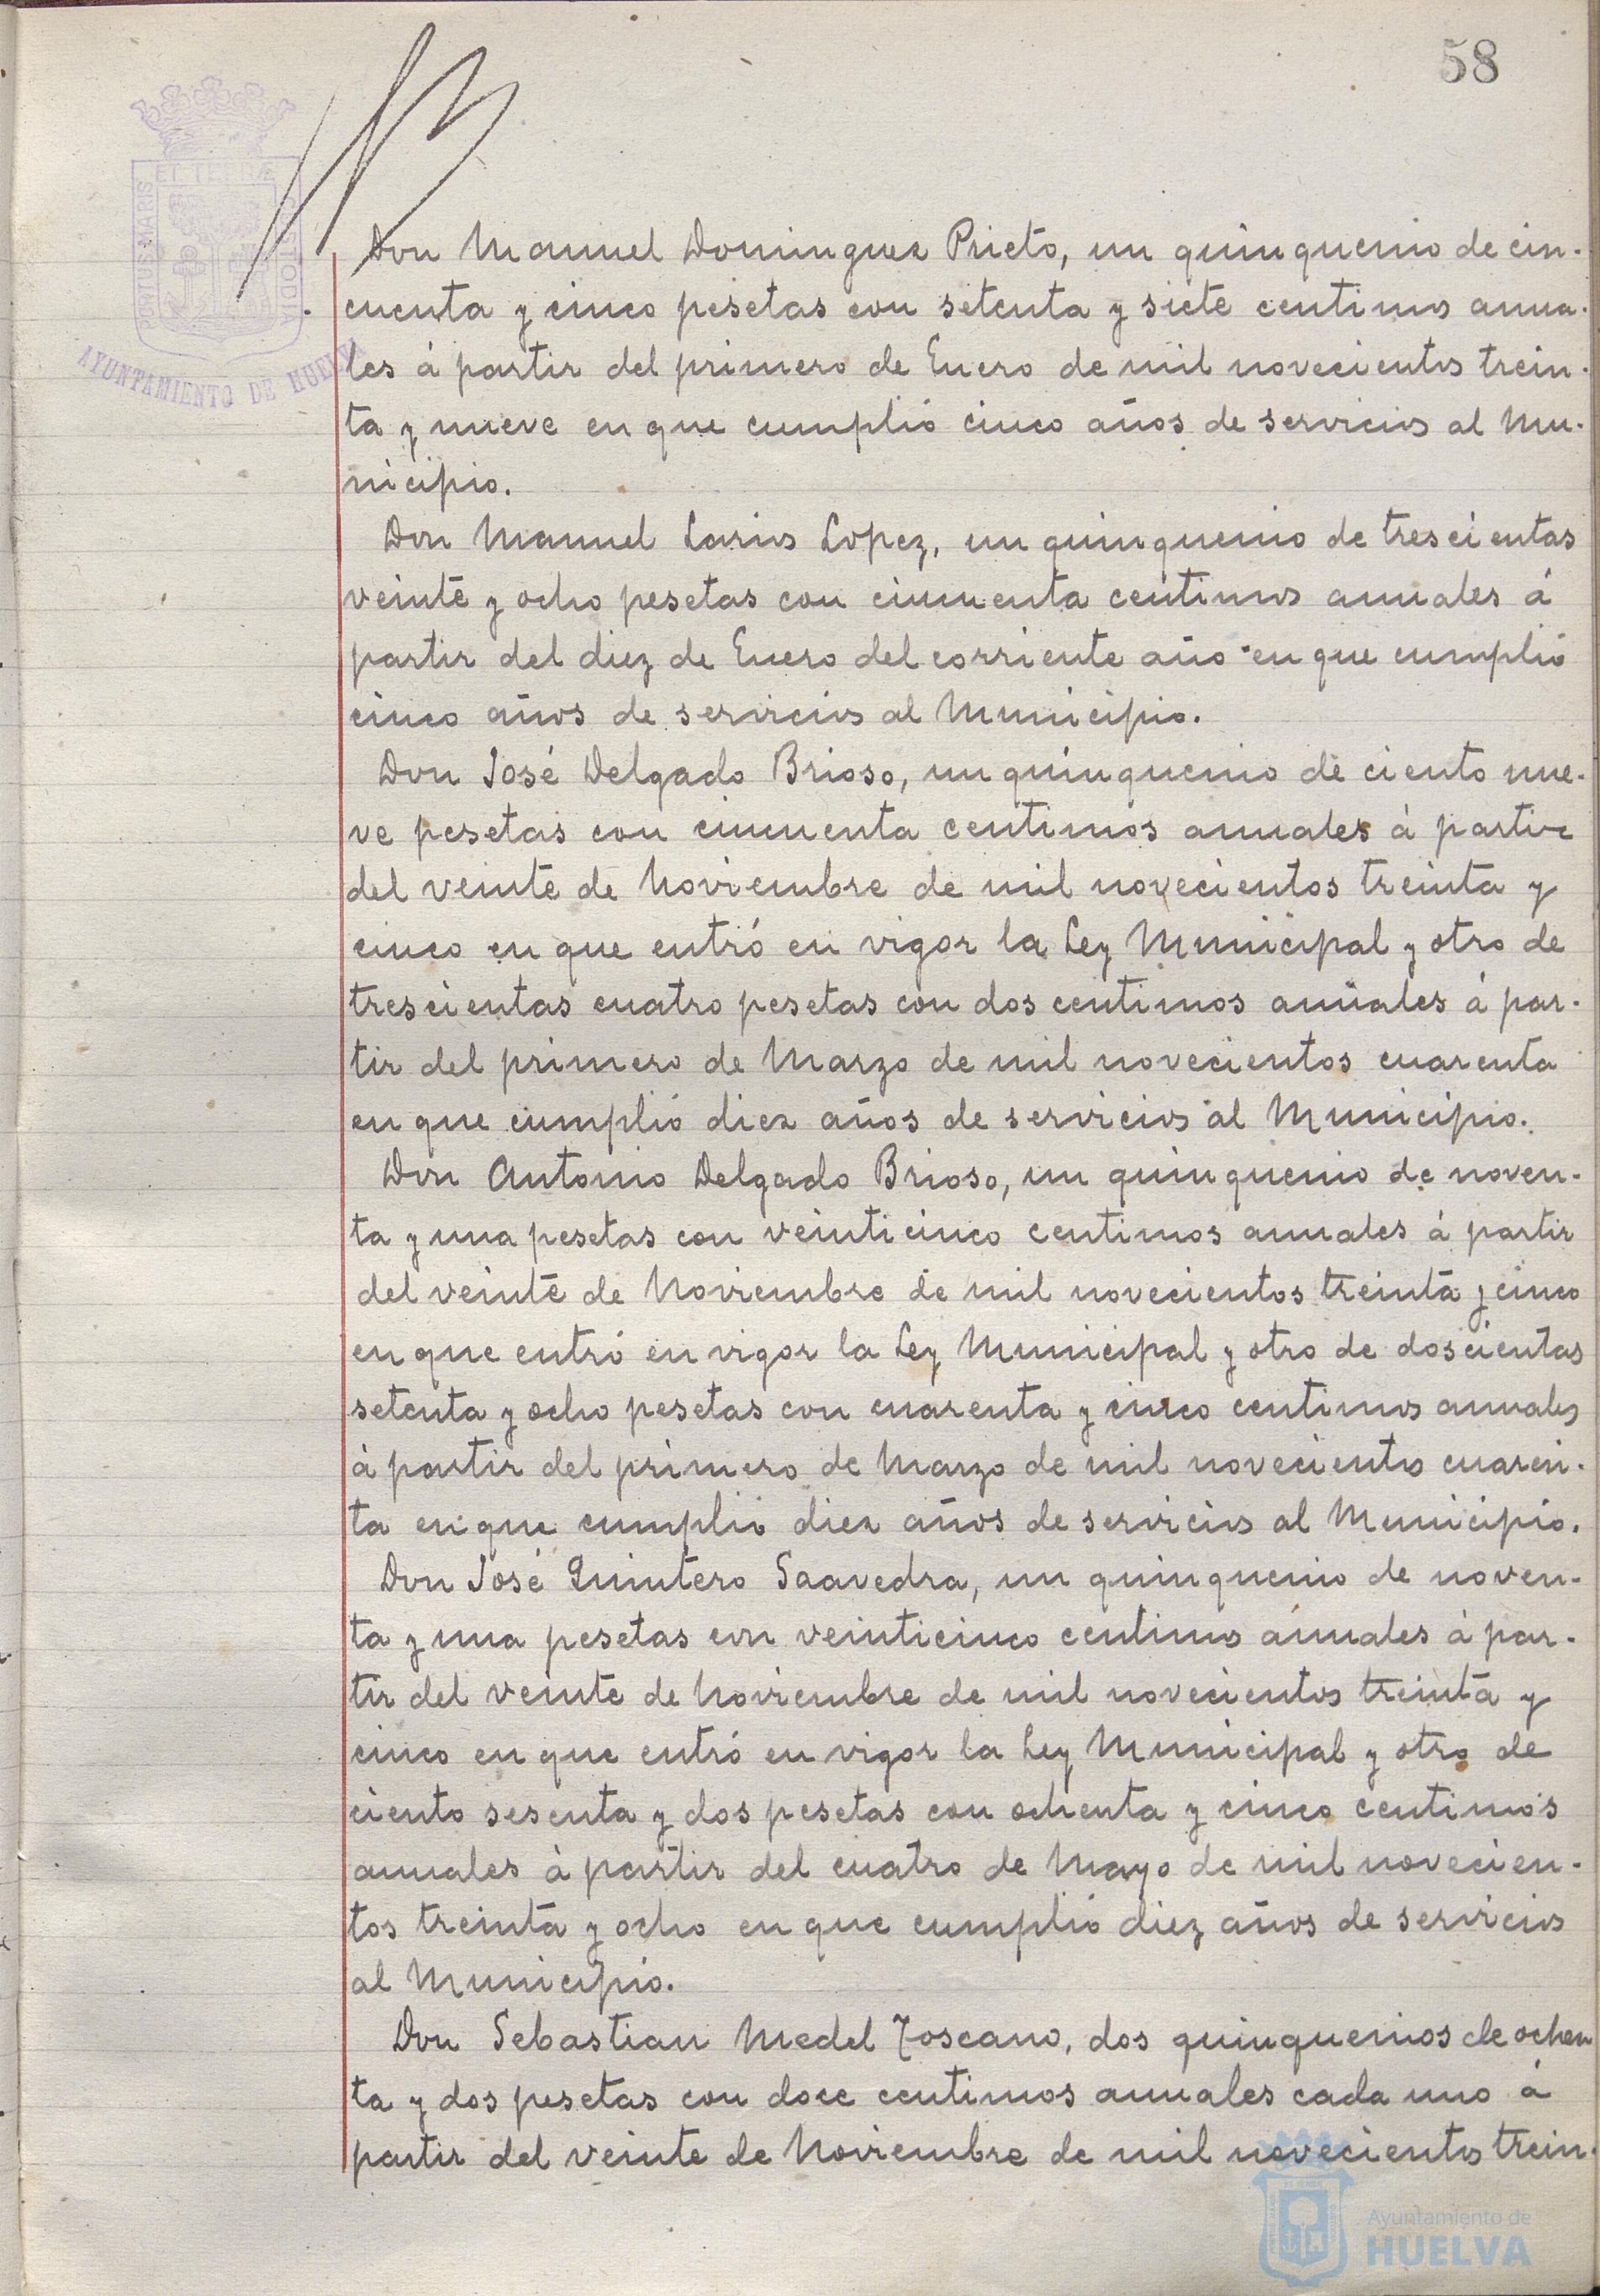 58
ET TERRÆ
PORTUS MARIS
CUSTODIA
AYUNTAMIENTO DE HUELVA
Don Manuel Dominguez Prieto, un quinquenio de cin-
cuenta y cinco pesetas con setenta y siete centimos anua-
les á partir del primero de Enero de mil novecientos trein-
ta y nueve en que cumplió cinco años de servicios al Mu-
nicipio.
Don Manuel Larios Lopez, un quinquenio de trescientas
veinte y ocho pesetas con cincuenta centimos anuales á
partir del diez de Enero del corriente año en que cumplió
cinco años de servicios al Municipio.
Don José Delgado Brioso, un quinquenio de ciento nue-
ve pesetas con cincuenta centimos anuales á partir
del veinte de Noviembre de mil novecientos treinta y
cinco en que entró en vigor la Ley Municipal y otro de
trescientas cuatro pesetas con dos centimos anuales á par-
tir del primero de Marzo de mil novecientos cuarenta
en que cumplió diez años de servicios al Municipio.
Don Antonio Delgado Brioso, un quinquenio de noven-
ta y una pesetas con veinticinco centimos anuales á partir
del veinte de Noviembre de mil novecientos treinta y cinco
en que entró en vigor la Ley Municipal y otro de doscientas
setenta y ocho pesetas con cuarenta y cinco centimos anuales
á partir del primero de Marzo de mil novecientos cuaren-
ta en que cumplió diez años de servicios al Municipio.
Don José Quintero Saavedra, un quinquenio de noven-
ta y una pesetas con veinticinco centimos anuales á par-
tir del veinte de Noviembre de mil novecientos treinta y
cinco en que entró en vigor la Ley Municipal y otro de
ciento sesenta y dos pesetas con ochenta y cinco centimos
anuales á partir del cuatro de Mayo de mil novecien-
tos treinta y ocho en que cumplió diez años de servicios
al Municipio.
Don Sebastian Medel Toscano, dos quinquenios de ochen
ta y dos pesetas con doce centimos anuales cada uno á
partir del veinte de Noviembre de mil novecientos trein-
Ayuntamiento de
HUELVA